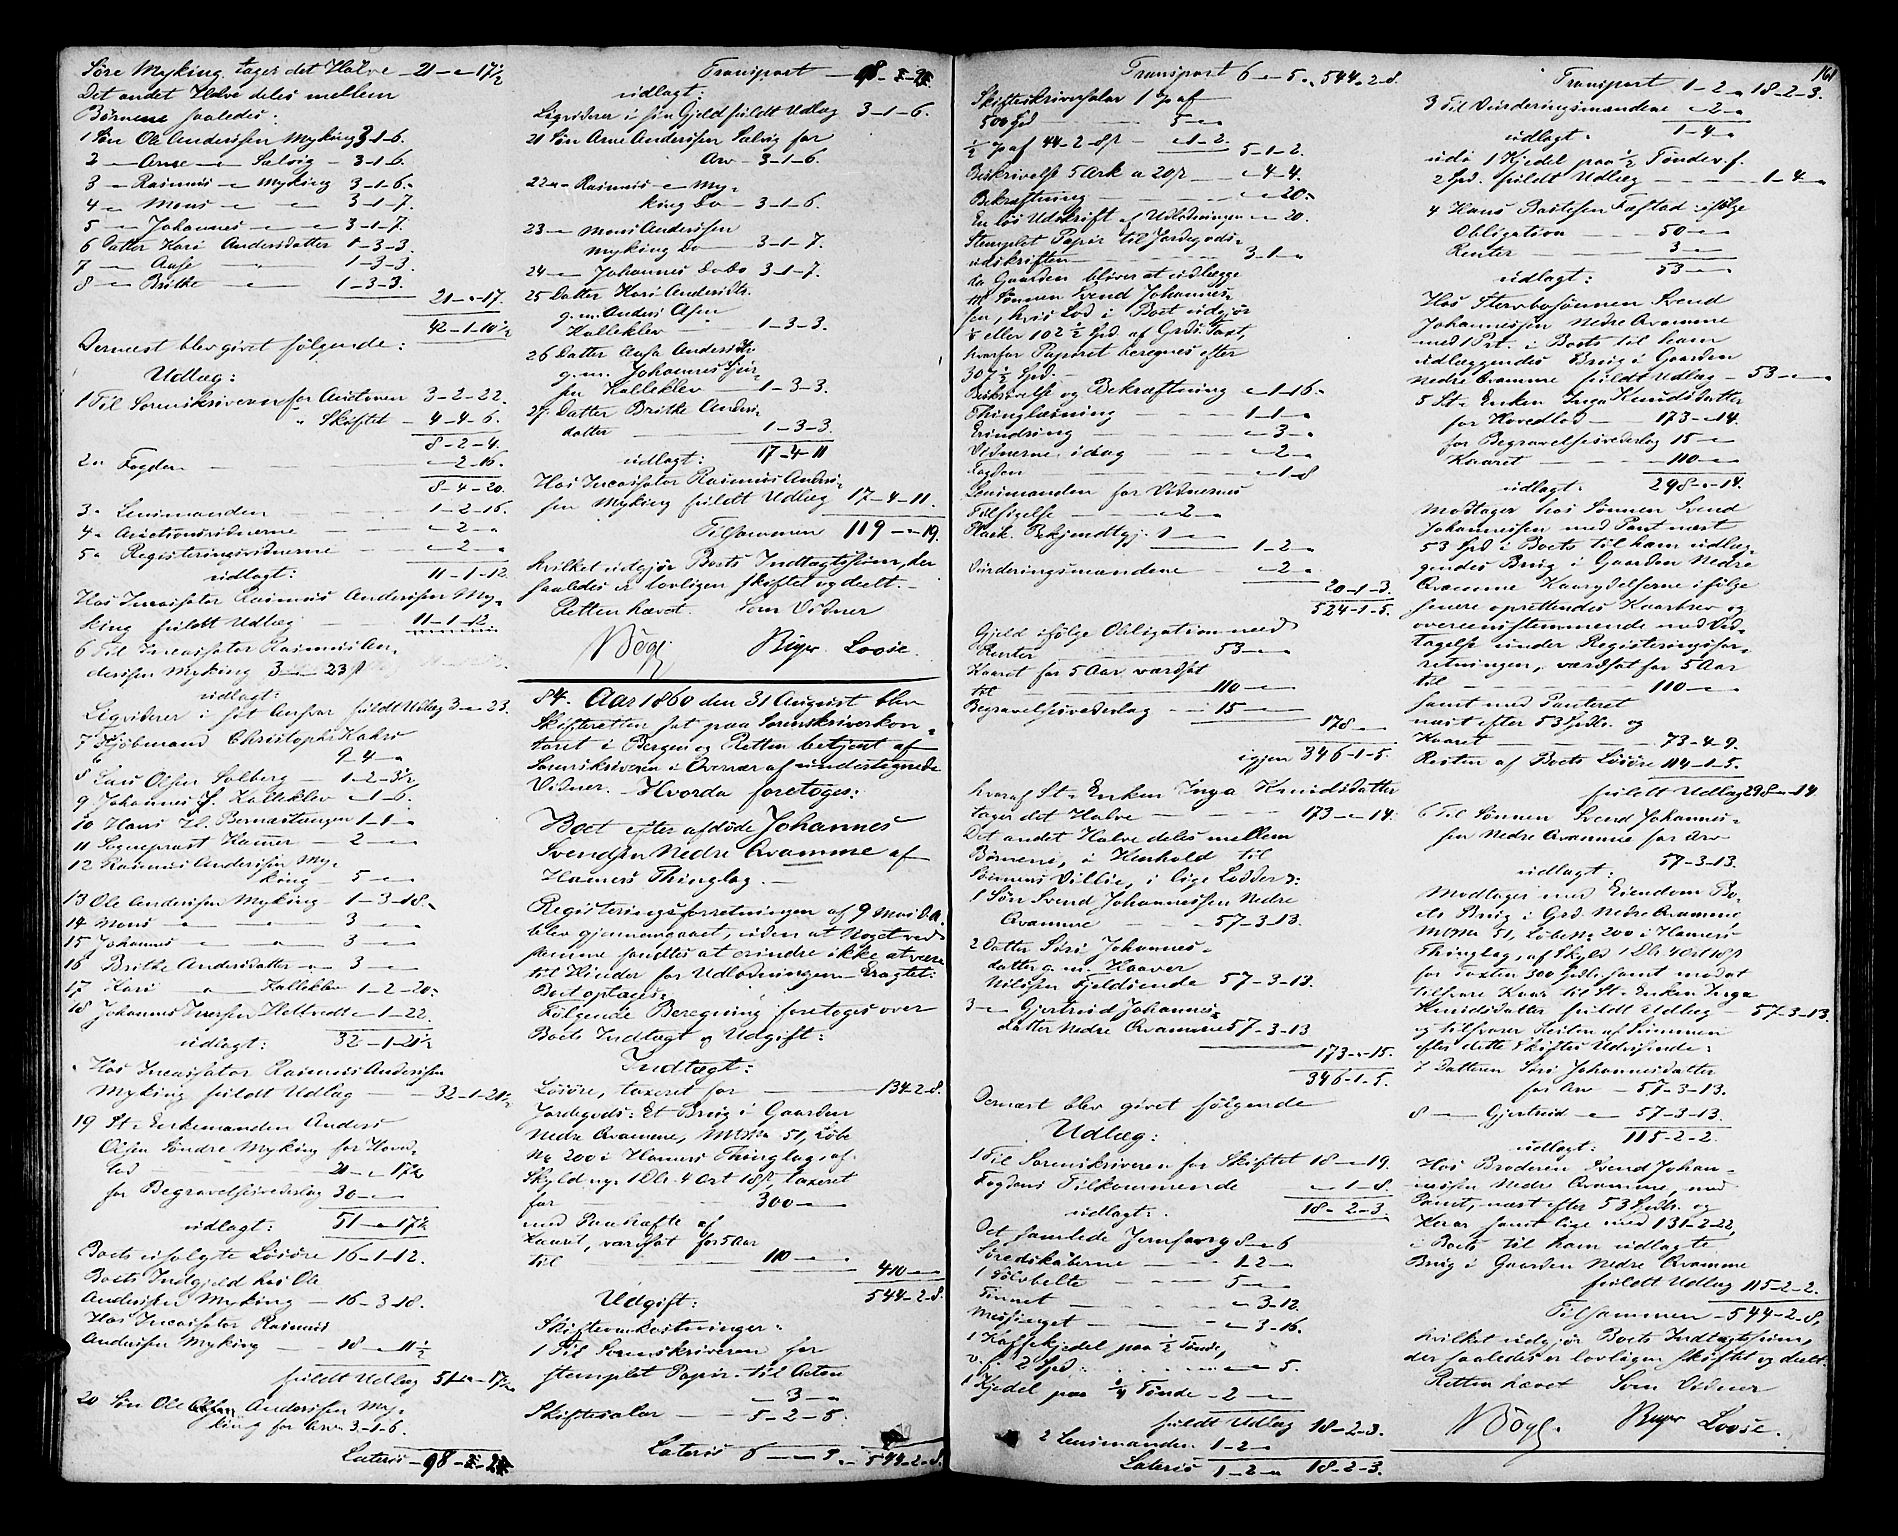 Søre Myking tager det Halve - 21 - " - 17½
Det andet Halve deles mellem
Børnene saaledes:
1 Søn Ole Anderssen Myking 3-1-6.
2 — Arne — Salvig - 3-1-6.
3 — Rasmus — Myking 3-1-6.
4 — Mons — — 3-1-7.
5 — Johannes — — 3-1-7.
6 Datter Kari Andersdatter 1-3-3.
7 — Aase — 1-3-3.
8 — Brithe — — 1-3-3.
21-"-17.
42-1-10½
Dernæst blev givet følgende:
Udlæg:
1 Til Sorenskriveren for Auctionen 3-2-22.
" Skiftet - 4-4-6.
8-2-4.
2 " Fogden — "-2-16.
8-4-20.
3 " Lensmanden 1-2-16.
4 " Auctionsvidnerne - "-2-"
5 " Registeringsvidnerne - "-2-"
udlagt: 11-1-12.
Hos Incassator Rasmus Anderssen My-
king fuldt Udlæg 11-1-12.
6 Til Incassator Rasmus An-
derssen Myking 3-"-23 ß
udlagt:
Liqviderer i sit Ansvar fuldt Udlæg 3-"-23.
7 Kjøbmand Christopher Kahrs
9-4-"
8 Lars Olsen Solberg - 1-2-3½
9 Johannes J. Kalleklev "-1-6.
10 Hans H. Bernastangen 1-1-"
11 Sogneprest Hamer - 2-"
12 Rasmus Anderssen My-
king - 5-"
13 Ole Anderssen Myking - 1-3-18.
14 Mons — — 3-"
15 Johannes — — 3-"
16 Brithe Andersdatter — 3-"
17 Kari — Kalleklev 1-2-20.
18 Johannes Iversen Helltvedt "-1-22.
udlagt: 32-1-21½
Hos Incassator Rasmus Anderssen
Myking fuldt Udlæg - 32-1-21½
19 St. Enkemanden Anders
Olsen Søndre Myking for Hoved-
lod — 21-"-17½
for Begravelsesvederlag 30-"
udlagt: 51-"-17½
Boets ufolgte Løsøre 16-1-12.
Boets Indgjeld hos Ole
Anderssen Myking - 16-3-18.
Hos Incassator Rasmus
Anderssen Myking - 18-"-11½
fuldt Udlæg 51-"-17½
20 Søn Ole Anderssen My-
king for Arv 3-1-6.
Lateris - 98-
Transport - 98-
udlagt:
Liqviderer i sin Gjeld fuldt Udlæg 3-1-6.
21 Søn Arne Anderssen Salvig for
Arv - 3-1-6.
22 — Rasmus — My-
king Do - 3-1-6.
23 — Mons Anderssen
Myking Do - 3-1-7.
24 — Johannes Do Do 3-1-7.
25 Datter Kari Andersdtr.
g. m. Anders Asen
Kalleklev 1-3-3.
26 Datter Aasa Andersdtr
g. m. Johannes
sen Kalleklev - 1-3-3.
27 Datter Brithe Anders-
datter — 1-3-3.
udlagt: 17-4-11
Hos Incassator Rasmus Anders-
sen Myking fuldt Udlæg 17-4-11.
Tilsammen 119-"-19.
hvilket udgjør Boets Indtægtssum, der
saaledes er lovligen skiftet og deelt.-
Retten hævet. Som Vidner
Bøgh Beyer Loose.
84. Aar 1860 den 31 August blev
Skifteretten sat paa Sorenskriverkon-
toret i Bergen og Retten betjent af
Sorenskriveren i Overvær af undertegnede
Vidner. - Hvorda foretoges:
Boet efter afdøde Johannes
Svendsen Nedre Qvamme af
Hamers Thinglag.-
Registeringsforretningen af 9 Mai d.A.
blev gjennemgaaet, uden at Noget ved
samme fandtes at erindre ikke at være
til Hinder for Udlodningen. Eragtet:
Boet optages.
Følgende Beregning foretoges over
Boets Indtægt og Udgift:
Indtægt:
Løsøre, taxeret for — 134-2-8.
Jordegods: Et Brug i Gaarden
Nedre Qvamme, M No 51, Løbe
No 200 i Hamers Thinglag, af
Skyld nye 1 Dlr. 4 Ort 18 ß, taxeret
for — 300-"
med Paahæfte af
Kaaret, værdsat for 5 Aar
til — 110-"
410-"
544-2-8.
Udgift:
Skifteomkostninger:
1 Til Sorenskriveren for
stemplet Papir til Acten
"-3-"
Skiftesalar - 5-2-5.
Lateris 6-"-5. - 544-2-8.
161
Transport 6-"-5. 544-2-8.
Skifteskriversalar 1 p af
500 Spd — 5-"
½ p af 44-2-8 ß - "-1-2.
5-1-2.
Beskrivelse 5 Ark a 20 ß - "-4-4.
Bekræftning - "-"-20.
En løs Udskrift af Udlodningen "-"-20.
Stemplet Papir til Jordegods-
udskriften — 3-1-"
da Gaarden bliver at udlægge
til Sønnen Svend Johannes-
sen, hvis Lod i Boet udgjør
⅓ eller 102½ Spd af Grds. Taxt,
hvorfor Papiret beregnes efter
307½ Spd.-
Beskrivelse og Bekræftning "-1-16.
Thinglæsning — 1-1-"
Erindring — "-3-"
Vidnerne idag — "-2-"
Fogden — "-1-8
Lensmanden for Vidnernes
Tilsigelse — "-2-"
Skrk. Bekjendtgj. 1-"
1-2-"
Vurderingsmændene — "-2-"
20-1-3.
524-1-5.
Gjeld ifølge Obligation med
Renter — 53-"
Kaaret for 5 Aar værdsat
til — 110-"
Begravelsesvederlag - 15-"
178-"
igjen 346-1-5.
hvoraf St. Enken Inga Knudsdatter
tager det Halve — 173-"-14.
Det andet Halve deles mellem
Børnene, i Henhold til
Sønnens Villie, i lige Lodder:
1 Søn Svend Johannessen Nedre
Qvamme — 57-3-13.
2 Datter Siri Johannes-
datter g. m. Haaver
Nilssen Fjeldsende 57-3-13.
3 — Gjertrud Johannes-
datter Nedre Qvamme 57-3-13
173-"-15.
346-1-5.
Dernæst blev givet følgende
Udlæg:
1 Til Sorenskriveren for Skiftet 18-"-19.
Fogdens Tilkommende "-1-8.
udlagt: 18-2-3.
Det samlede Jernfarvg 8-"-6
Søredskaberne — 1-2-"
1 Sølvbelte — 5-"
Tinnet — "-3-12.
Messinget — "-3-16.
1 Kaffekjedel paa ½ Tønde,
v. f. 2 Spd: "-"-5.
1 Kjedel paa ¼ Tønde - 2-"
fuldt Udlæg 18-2-3.
2 Lensmanden 1-2-"
Lateris 1-2-" 18-2-3.
Transport 1-2-" 18-2-3.
3 Til Vurderingsmændene "-2-"
udlagt: 1-4-"
udi 1 Kjedel paa ½ Tønde v. f.
2 Spd. fuldt Udlæg — 1-4-"
4 Hans Bastesen Fastad ifølge
Obligation — 50-"
Renter — 3-"
udlagt: 53-"
Hos Stervbosønnen Svend
Johannessen Nedre Qvamme
med 1 Prt. i Boets til ham
udlæggendes Brug i Gaarden
Nedre Qvamme fuldt Udlæg - 53-"
5 St. Enken Inga Knudsdatter
for Hovedlod — 173-"-14.
for Begravelsesvederlag 15-"
Kaaret — 110-"
udlagt: 298-"-14.
Modtager hos Sønnen Svend
Johannessen med Pant næst
53 Spd i Boets til ham udlæg-
gendes Brug i Gaarden Nedre
Qvamme Kaarydelserne ifølge
senere oprettendes Kaarbrev og
overeensstemmende med Ved-
tagelse under Registeringsfor-
retningen, værdsat for 5 Aar
til — 110-"
samt med Panteret
næst efter 53 Spdlr. og
Kaaret — 73-4-9.
Resten af Boets Løsøre 114-1-5.
fuldt Udlæg 298-"-14
6 Til Sønnen Svend Johannes-
sen Nedre Qvamme for Arv
57-3-13.
udlagt:
Modtager med Eiendom Bo-
ets Brug i Grd. Nedre Qvamme,
M No 51, Løbe No 200 i Hamers
Thinglag, af Skyld 1 Dlr 4 Ort 18 ß
for Taxten 300 Spdlr. samt mod at
tilsvare Kaar til St. Enken Inga
Knudsdatter fuldt Udlæg - 57-3-13.
og tilsvarer Resten af Summen
efter dette Skiftes Udvisende:
7 Datteren Siri Johannesdatter
for Arv - 57-3-13.
8 — Gjertrud — 57-3-13.
udlagt: 115-2-2.
Hos Broderen Svend Johan-
nessen Nedre Qvamme, med
Pant, næst efter 53 Spdlr. og
Kaar samt lige med 131-2-22,
i Boets til ham udlagte
Brug i Gaarden Nedre Qvamme
fuldt Udlæg 115-2-2.
Tilsammen - 544-2-8,
hvilket udgjør Boets Indtægtssum,
der saaledes er lovligen skiftet og deelt.
Retten hævet Som Vidner
Bøgh. Beyer Loose.